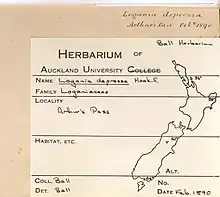 Logania depressa
Arthur's Pass Feb. 1890
Ball Herbarium
HERBARIUM OF
AUCKLAND UNIVERSITY COLLEGE
NAME Logania depressa Hook.f.
FAMILY Loganiaceae
LOCALITY
Arthur's Pass
HABITAT, ETC.
ALT.
COLL. Ball
NO.
DET. Ball
DATE Feb. 1890